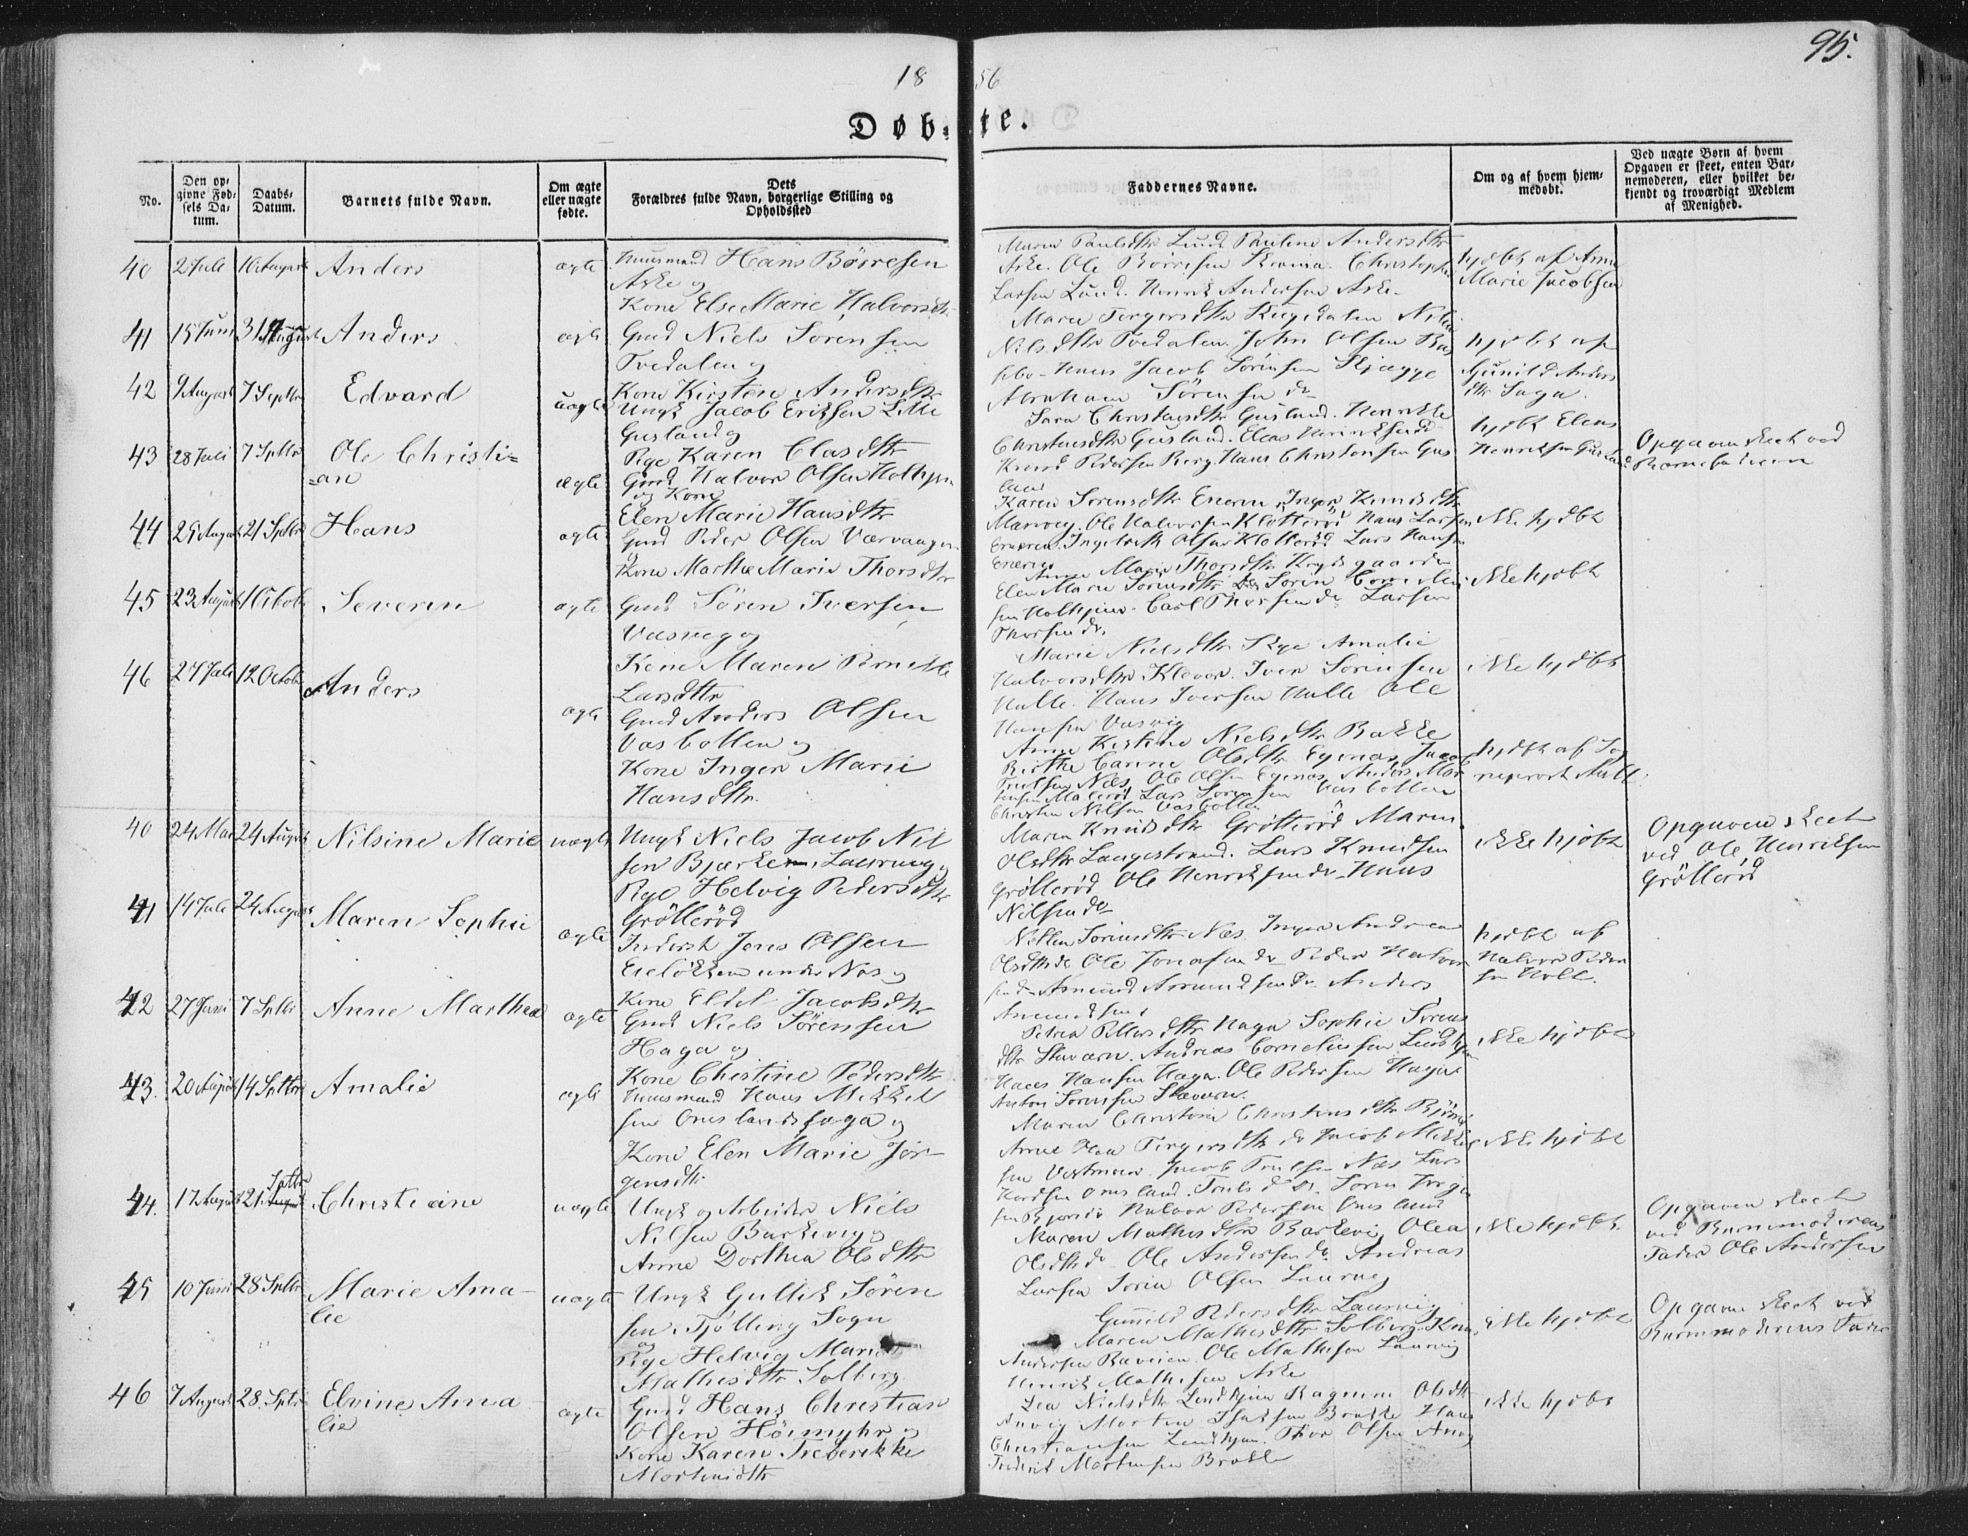 95.
18 56
Døb- te.
No.
Den opgivne Fødsels Datum.
Daabs-Datum.
Barnets fulde Navn.
Om ægte eller uægte fødte.
Dets Forældres fulde Navn, borgerlige Stilling og Opholdssted
Faddernes Navne.
Om og af hvem hjemmedøbt.
Ved uægte Børn af hvem Opgaven er skeet, enten Barnemoderen, eller hvilket bekjendt og troværdigt Medlem af Menighed.
40 2 Juli 10 August Anders ægte Huusmand Hans Børresen
Aske og
Kone Else Marie Halvorsdtr
Maren Paulsdtr Lund Pauline Andersdtr
Aske. Ole Børresen
Larsen Lund. Henrik Andersen Aske
hjdbt af Anne
Marie Jacobsen
41 15 Juni 31 August Anders ægte Gmd Niels Sørensen
Tvedalen og
Kone Kirsten Andersdtr
Nilsdtr Tvedalen. John Olsen
Hans Jacob Sørensen Skjægge
Abraham Sørensen do
hjdbt af
Gunild Anders
dtr Saga.
42 9 August 7 Septbr Edvard uægte Ungk Jacob Eriksen Lille
Gusland og
Pige Karen Clasdtr
Sara Christensdtr Gusland. Henrikke
Christensdtr Gusland. Elias Henriksen do
Knud Pedersen Berg. Hans Christensen Gus
land
hjdbt Elias
Henriksen Gusland
Opgaven skeet ved
Barnefaderen
43 28 Juli 7 Sptbr Ole Christi=
=an ægte Gmd Halvor Olsen Holtyen
og Kone
Elen Marie Hansdtr
Karen Sørensdtr Eneren Inger Knudsdtr
Manvig. Ole Halvorsen Klotterød Hans Larsen
Eneren. Ingebreth Olsen Klotterød Lars Hansen
Eneren
ikke hjdbt
44 25 August 21 Sptbr Hans ægte Gmd Peder Olsen Værvaagen
og
Kone Marthe Marie Thorsdtr
Anne Marie Thorsdtr
Elen Marie Sørensdtr do Søren Corneliu
sen Holtyen. Carl Thorsen do Larsen
Thorsen do.
ikke hjdbt
45 23 August 10 Octobr Severin ægte Gmd Søren Iversen
Vasvig og
Kone Maren Pernille
Larsdtr
Marie Nielsdtr Rye Amalie
Halvorsdtr Klever. Iver Sørensen
Halle. Hans Iversen Halle Ole
Hansen Vasvig
ikke hjdbt
46 27 Juli 12 Octobr Anders ægte Gmd Anders Olsen
Vasbotten og
Kone Inger Marie
Hansdtr.
Anne Kirstine Nielsdtr Bakke
Birthe Canne Olsdtr Egenæs Jacob
Trulsen Næs, Ole Olsen Egenæs, Anders Mor
tensen Malerød Lars Sørensen Vasbotten
Christen Nilsen Vasbotten
hjdbt af Sog
nepræst
40 24 Mai 24 August Nilsine Marie uægte Ungk Niels Jacob Nil
sen Bjerke Laurvig og
Pige Helvig Pedersdtr
Grøtterød
Maren Knudsdtr Grøtterød Maren
Olsdtr Langestrand. Lars Knudsen
Grøtterød Ole Henriksen do Hans
Nilsen do
ikke hjdbt
Opgaven skeet
ved Ole Henriksen
Grøtterød
41 14 Juli 24 August Maren Sophie ægte Inderst Jens Olsen
under Næs og
Kone Eldel Jacobsdtr
Nellen Sørensdtr Næs. Inger Andrea
Olsdtr do Ole Jonasen do Peder Halvor
sen do Amund Amundsen do Anders
Amundsen
hjdbt af
Halvor Peder
sen Holt.
42 27 Juni 7 Sptbr Anne Marthea ægte Gmd Niels Sørensen
Haga og
Kone Christine Pedersdtr
Petrea Pettersdtr Haga Sophie Sørens
dtr Stavern. Andreas Corneliussen
Hans Hansen Haga. Ole Pedersen Haga
Anton Sørensen Stavern.
ikke hjdbt
43. 20 August 14 Sptbr Amalie ægte Huusmand Hans Mikkel
sen Onslandsaga og
Kone Elen Marie Jør-
gensdtr
Maren Christine Christensdtr
Anne Torgersdtr do Jacob Mikkel
sen Jacob Trulsen Næs Lars
Halvor Pedersen Onsland
ikke hjdbt
44. 17 August 21 August Sptbr Christiane uægte Ungk og Arbeider Niels
Nilsen Barkevig og
Anne Dorthea Olsdtr
Maren Mathisdtr Barkevig Olea
Olsdtr do Ole Andersen do Andreas
Larsen Soren Olsen Laurvig
ikke hjdbt.
Opgaven skeet
ved Barnemoderens
Fader Ole Andersen
45 10 Juni 28 Sptbr Marie Ama-
lie uægte Ungk Gullik Søren
sen, Tjølling Sogn
og
Pige Helvig Marie
Mathisdtr Solberg
Gunild Pedersdtr Laurvig
Maren Mathisdtr Solberg. Knud
Andersen Ole Mathisen Laurvig
Henrik Mathisen Aske
ikke hjdbt
Opgaven skeet ved
Barnemoderens Fader
46 7 August 28 Sptbr Elvine Ama
lie ægte Gmd Hans Christian
Olsen Høimyhr og
Kone Karen Frederikke
Mortensdtr
Lea Nielsdtr Ragnine Olsdtr
Anvig Morten Isaksen Brække Hans
Christiansen Thor Olsen Anvig
Frederik Mortensen Brække
ikke hjdbt